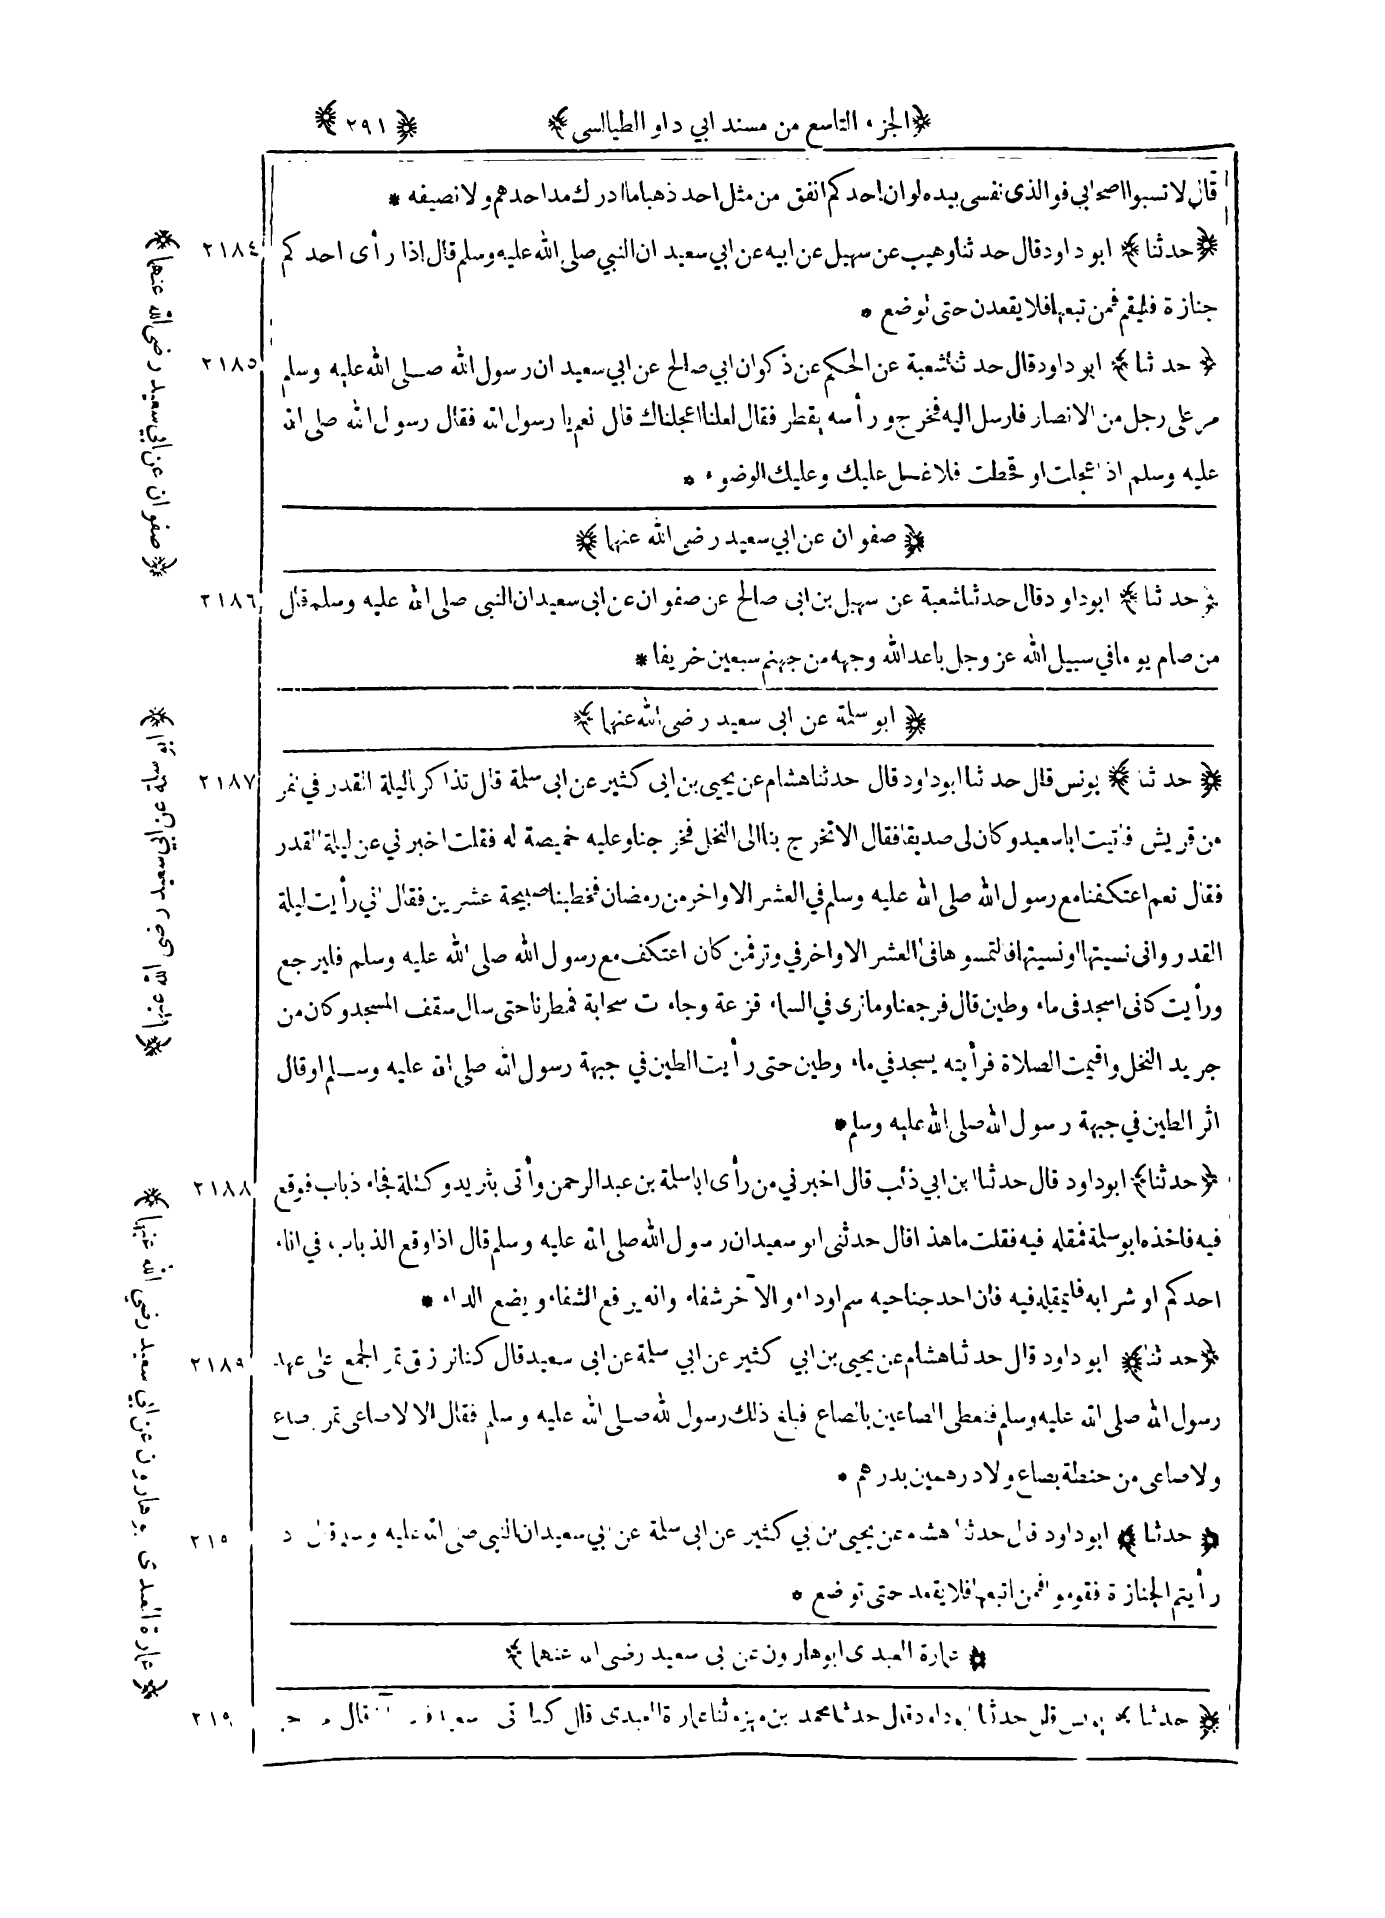 ﴿الجزء التاسع من مسند ابي داو الطيالسى﴾ ﴿٢٩١﴾
قال لا تسبوا اصحابي فو الذى نفسى بيده لو ان احدكم انفق من مثل احد ذهبا ما ادرك مد احدهم ولا نصيفه *
٢١٨٤ ﴿حدثنا﴾ ابو داود قال حدثنا وهيب عن سهيل عن ابيه عن ابي سعيد ان النبي صلى الله عليه وسلم قال اذا رأى احدكم
جنازة فليقم فمن تبعها فلا يقعدن حتى توضع *
٢١٨٥ ﴿حدثنا﴾ ابو داود قال حدثنا شعبة عن الحكم عن ذكوان ابي صالح عن ابي سعيد ان رسول الله صلى الله عليه وسلم
مر على رجل من الانصار فارسل اليه فخرج و رأسه يقطر فقال لعلنا اعجلناك قال نعم يا رسول الله فقال رسول الله صلى الله
عليه وسلم اذا عجلت او قحطت فلا غسل عليك وعليك الوضوء *
﴿صفوان عن ابي سعيد رضى الله عنهما﴾
٢١٨٦ ﴿حدثنا﴾ ابو داود قال حدثنا شعبة عن سهيل بن ابى صالح عن صفوان عن ابى سعيد ان النبى صلى الله عليه وسلم قال
من صام يوما في سبيل الله عز وجل باعد الله وجهه من جهنم سبعين خريفا *
﴿ابو سلمة عن ابى سعيد رضى الله عنهما﴾
٢١٨٧ ﴿حدثنا﴾ يونس قال حدثنا ابو داود قال حدثنا هشام عن يحيى بن ابى كثير عن ابى سلمة قال تذاكر اليلة القدر في نفر
من قريش فاتيت ابا سعيد وكان لى صديقا فقال الا تخرج بنا الى النخل فخرجنا وعليه خميصة له فقلت اخبرني عن ليلة القدر
فقال نعم اعتكفنا مع رسول الله صلى الله عليه وسلم في العشر الاواخر من رمضان فخطبنا صبيحة عشرين فقال اني رأيت ليلة
القدر وانى نسيتها او نسيتها فالتمسوها فى العشر الاواخر في وتر فمن كان اعتكف مع رسول الله صلى الله عليه وسلم فليرجع
ورأيت كانى اسجد فى ماء وطين قال فرجعنا وما نرى في السماء قزعة وجاءت سحابة فمطرنا حتى سال سقف المسجد وكان من
جريد النخل واقيمت الصلاة فرأيته يسجد في ماء وطين حتى رأيت الطين في جبهة رسول الله صلى الله عليه وسلم او قال
اثر الطين في جبهة رسول الله صلى الله عليه وسلم *
٢١٨٨ ﴿حدثنا﴾ ابو داود قال حدثنا ابن ابي ذئب قال اخبرني من رأى ابا سلمة بن عبد الرحمن وأتى بثريد وكتلة فجاء ذباب فوقع
فيه فاخذه ابو سلمة فمقله فيه فقلت ما هذا قال حدثنى ابو سعيد ان رسول الله صلى الله عليه وسلم قال اذا وقع الذباب في اناء
احدكم او شرابه فليمقله فيه فان احد جناحيه سم او داء والآخر شفاء وانه يرفع الشفاء ويضع الداء *
٢١٨٩ ﴿حدثنا﴾ ابو داود قال حدثنا هشام عن يحيى بن ابي كثير عن ابي سلمة عن ابى سعيد قال كنا نرزق تمر الجمع على عهد
رسول الله صلى الله عليه وسلم فنعطى الصاعين بالصاع فبلغ ذلك رسول الله صلى الله عليه وسلم فقال الا لا صاعى تمر بصاع
ولا صاعى من حنطة بصاع ولا درهمين بدرهم *
﴿حدثنا﴾ ابو داود قال حدثنا هشام عن يحيى بن ابي كثير عن ابى سلمة عن ابي سعيد ان النبى صلى الله عليه وسلم قال
رأيتم الجنازة فقوموا فمن اتبعها فلا يقعد حتى توضع *
﴿عمارة العبدى ابو هارون عن ابى سعيد رضى الله عنهما﴾
﴿حدثنا﴾ يونس قال حدثنا ابو داود قال حدثنا محمد بن ثنا عمارة العبدى قال كنا
﴿صفوان عن ابي سعيد رضى الله عنهما﴾
﴿ابو سلمة عن ابي سعيد رضى الله عنهما﴾
﴿عمارة العبدى ابو هارون عن ابي سعيد رضي الله عنهما﴾